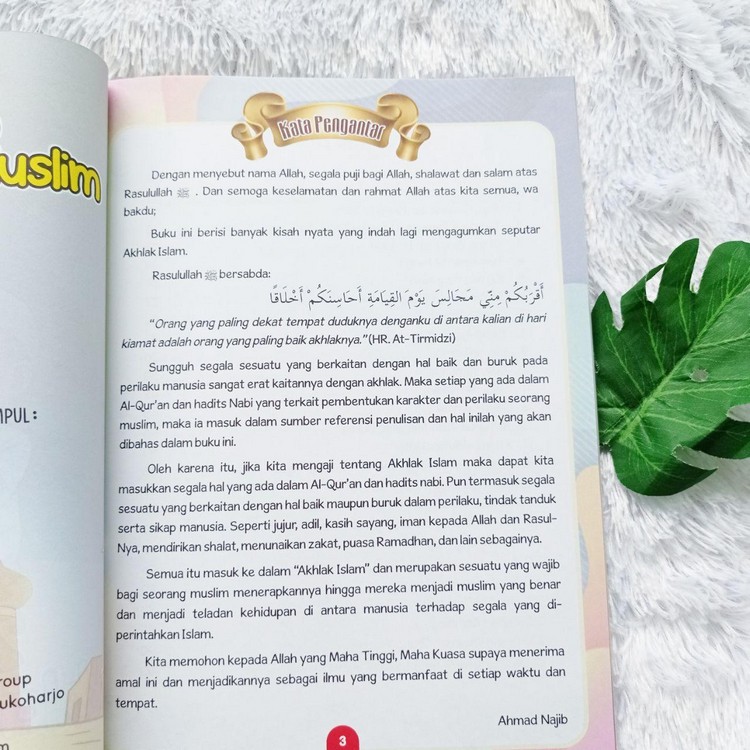 uslim
MPUL:
roup
ukoharjo
m
Kata Pengantar
Dengan menyebut nama Allah, segala puji bagi Allah, shalawat dan salam atas
Rasulullah ﷺ . Dan semoga keselamatan dan rahmat Allah atas kita semua, wa
bakdu;
Buku ini berisi banyak kisah nyata yang indah lagi mengagumkan seputar
Akhlak Islam.
Rasulullah ﷺ bersabda:
أَقْرَبُكُمْ مِنِّي مَجَالِسَ يَوْمَ القِيَامَةِ أَحَاسِنَكُمْ أَخْلَاقًا
"Orang yang paling dekat tempat duduknya denganku di antara kalian di hari
kiamat adalah orang yang paling baik akhlaknya."(HR. At-Tirmidzi)
Sungguh segala sesuatu yang berkaitan dengan hal baik dan buruk pada
perilaku manusia sangat erat kaitannya dengan akhlak. Maka setiap yang ada dalam
Al-Qur'an dan hadits Nabi yang terkait pembentukan karakter dan perilaku seorang
muslim, maka ia masuk dalam sumber referensi penulisan dan hal inilah yang akan
dibahas dalam buku ini.
Oleh karena itu, jika kita mengaji tentang Akhlak Islam maka dapat kita
masukkan segala hal yang ada dalam Al-Qur'an dan hadits nabi. Pun termasuk segala
sesuatu yang berkaitan dengan hal baik maupun buruk dalam perilaku, tindak tanduk
serta sikap manusia. Seperti jujur, adil, kasih sayang, iman kepada Allah dan Rasul-
Nya, mendirikan shalat, menunaikan zakat, puasa Ramadhan, dan lain sebagainya.
Semua itu masuk ke dalam "Akhlak Islam" dan merupakan sesuatu yang wajib
bagi seorang muslim menerapkannya hingga mereka menjadi muslim yang benar
dan menjadi teladan kehidupan di antara manusia terhadap segala yang di-
perintahkan Islam.
Kita memohon kepada Allah yang Maha Tinggi, Maha Kuasa supaya menerima
amal ini dan menjadikannya sebagai ilmu yang bermanfaat di setiap waktu dan
tempat.
Ahmad Najib
3